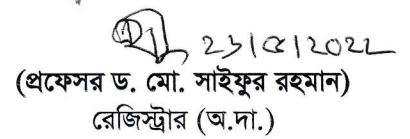 ২১/৫/২০২২
(প্রফেসর ড. মো. সাইফুর রহমান)
রেজিস্ট্রার (অ.দা.)